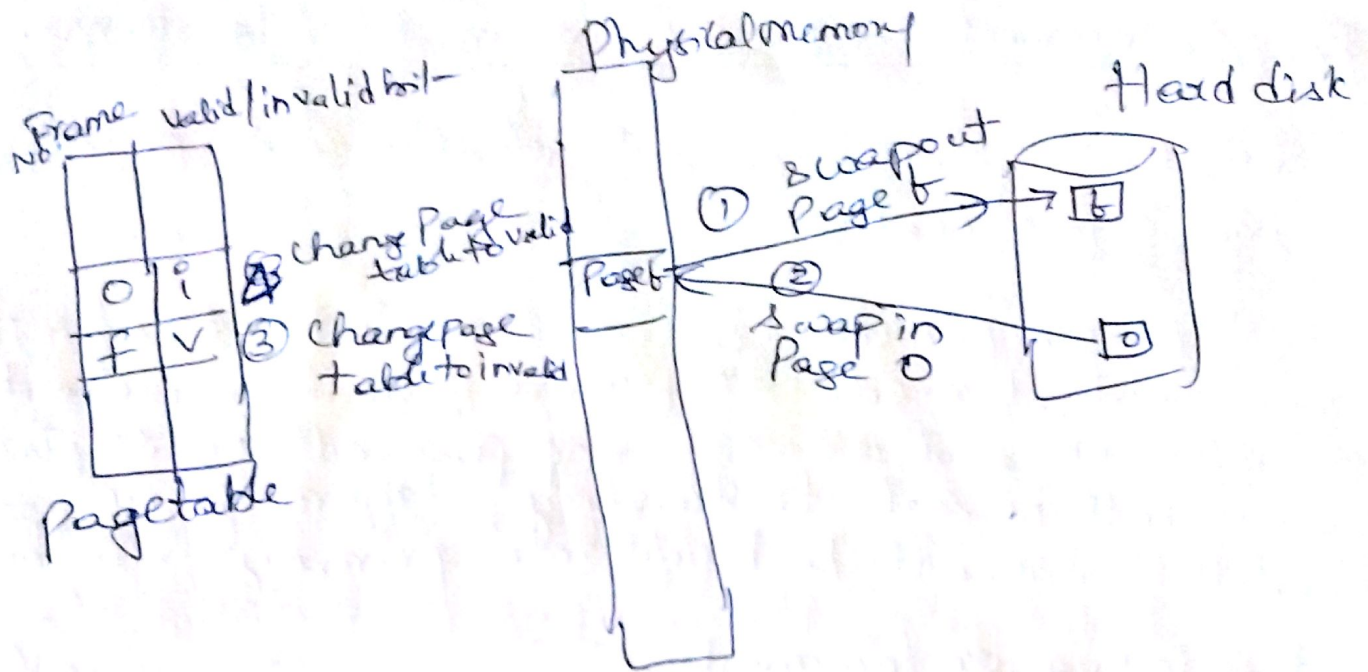 Physical memory
Hard disk
Frame valid/invalid bit
No
0 i
f v
change page
table to valid
③ change page
table to invalid
Page table
Page f
① swapout
Page f
② 
swap in
Page 0
f
0